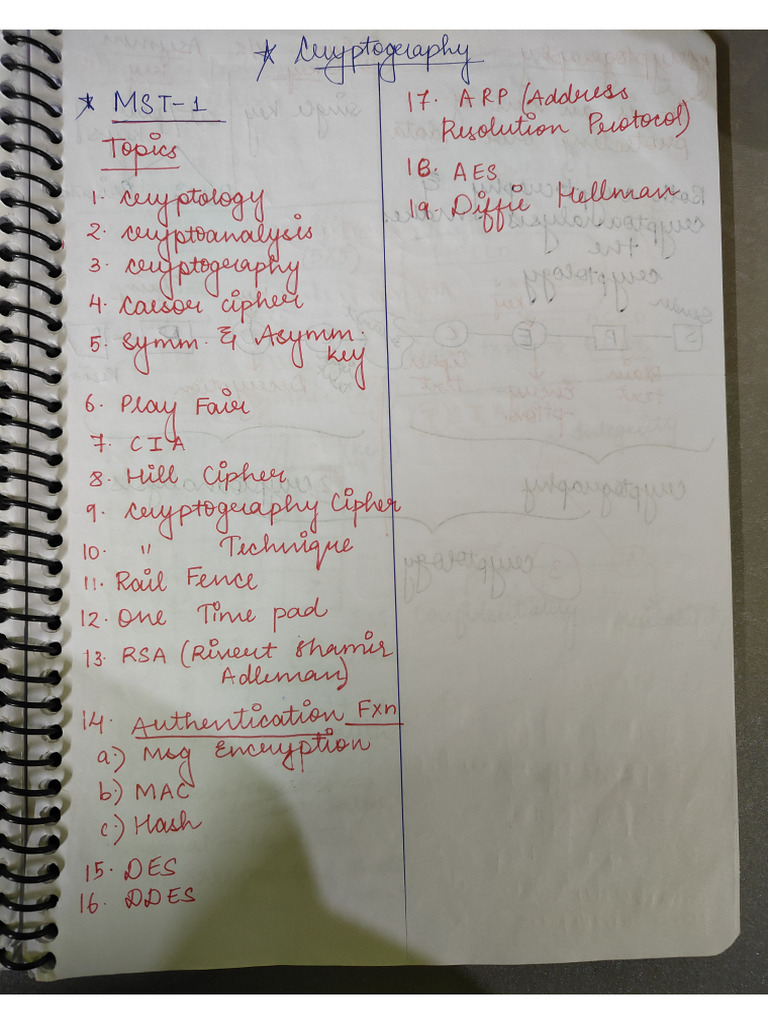 * Cryptography
* MST-1
Topics
1. Cryptology
2. Cryptoanalysis
3. Cryptography
4. Caesor Cipher
5. Symm. & Asymm.
key
6. Play Fair
7. CIA
8. Hill Cipher
9. Cryptography Cipher
10. " Technique
11. Rail Fence
12. One Time pad
13. RSA (Rivert Shamir
Adleman)
14. Authentication Fxn
a.) Msg Encryption
b.) MAC
c.) Hash
15. DES
16. DDES
17. ARP (Address
Resolution Protocol)
18. AES
19. Diffie Hellman